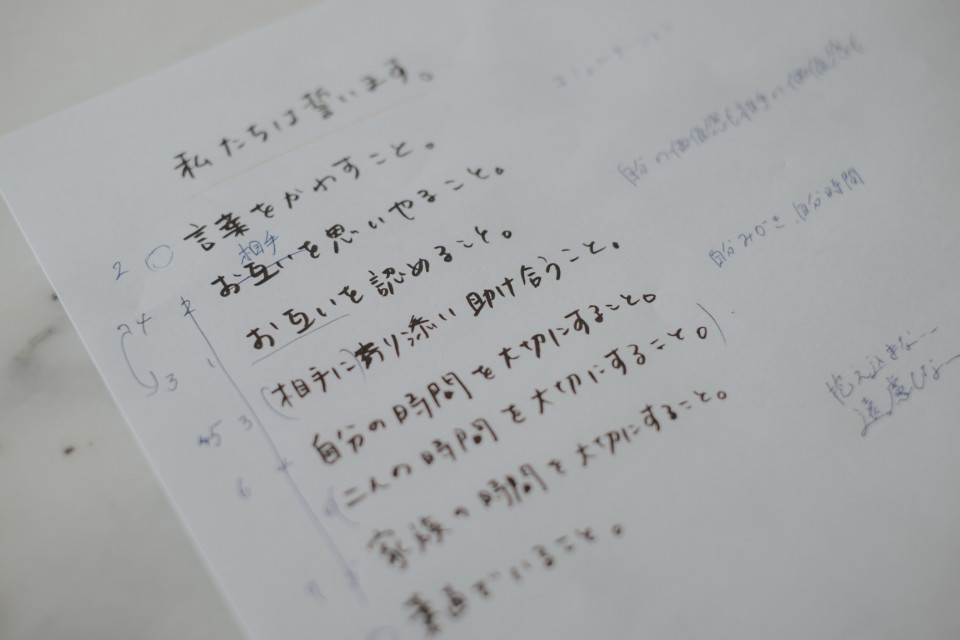 私たちは誓います。
言葉をかわすこと。
2 ○ 相手
お互いを思いやること。
4 お互いを認めること。
1 (相手に)寄り添い助け合うこと。
3 自分の時間を大切にすること。
5 3 (二人の時間を大切にすること。)
6 家族の時間を大切にすること。
でいること。
自分の価値感も相手の価値感も
自分みがき、自分時間
抱え込まない…
遠慮しない